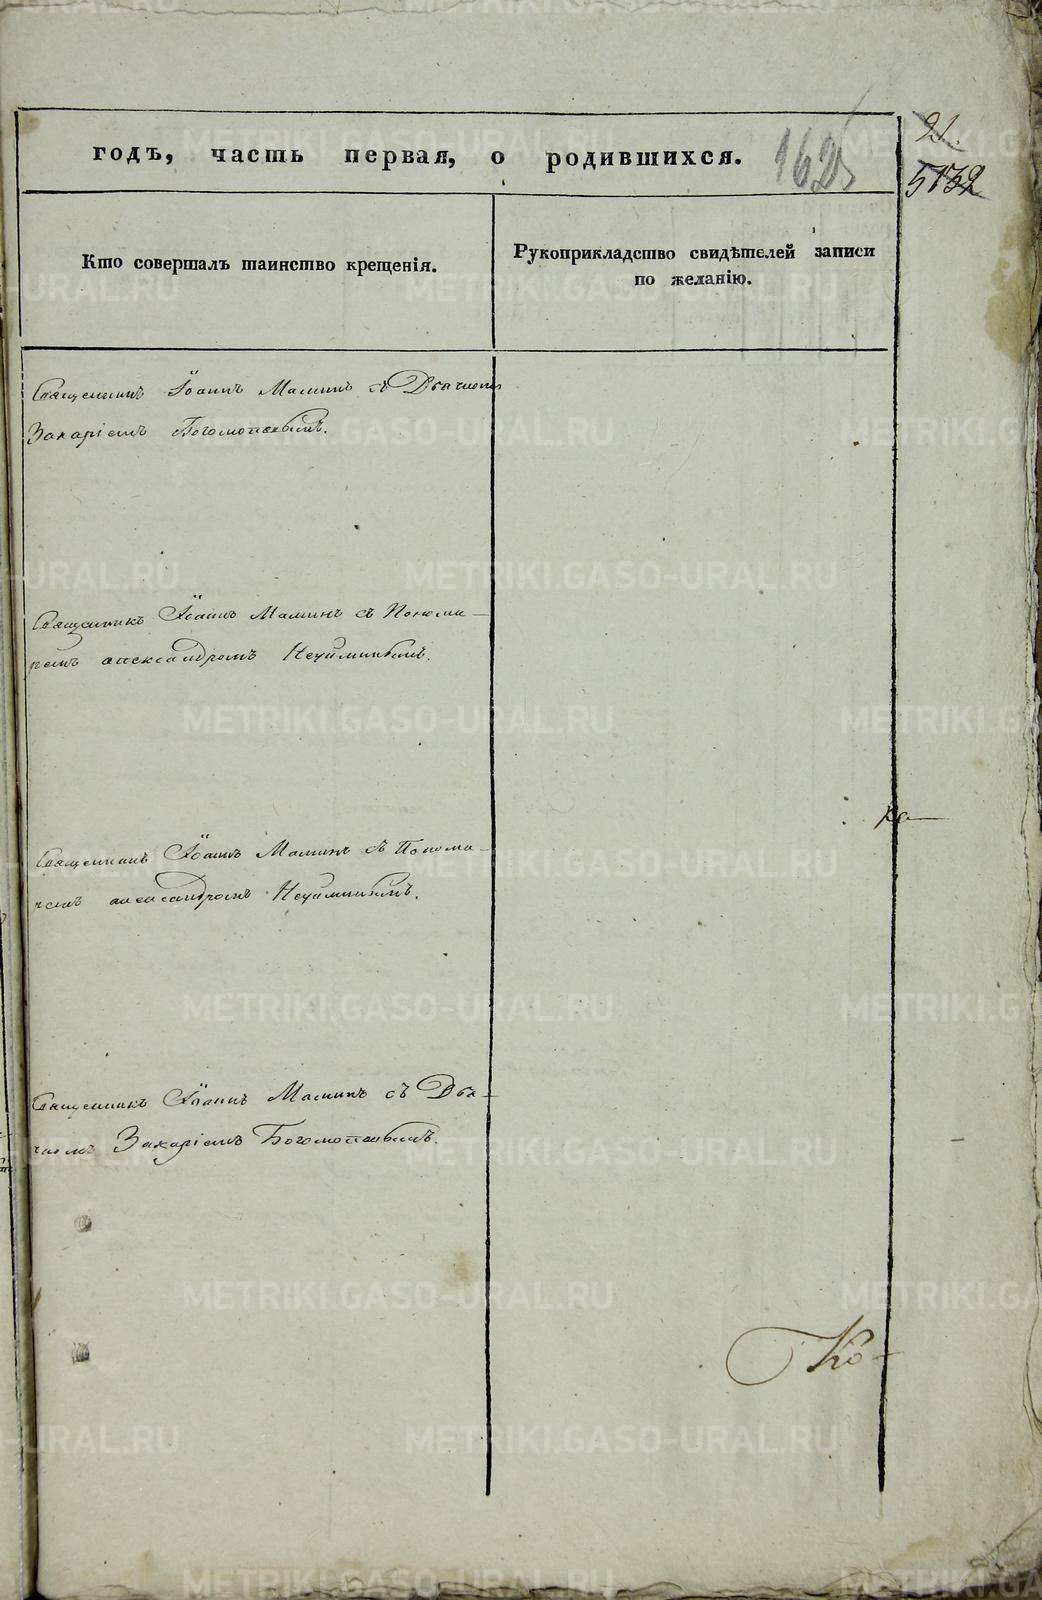 21.
годъ, часть первая, о родившихся.
162
5132
Кто совершалъ таинство крещенія.
Рукоприкладство свидѣтелей записи
по желанію.
Священникъ Іоаннъ Маминъ съ Дьячкомъ
Захаріемъ Богомоловымъ.
Священникъ Іоаннъ Маминъ съ Понома-
ремъ александромъ
Священникъ Іоаннъ Маминъ съ Понома-
ремъ александромъ
Священникъ Іоаннъ Маминъ съ Дья-
чкомъ Захаріемъ Богомоловымъ.
Ко-
METRIKI.GASO-URAL.RU